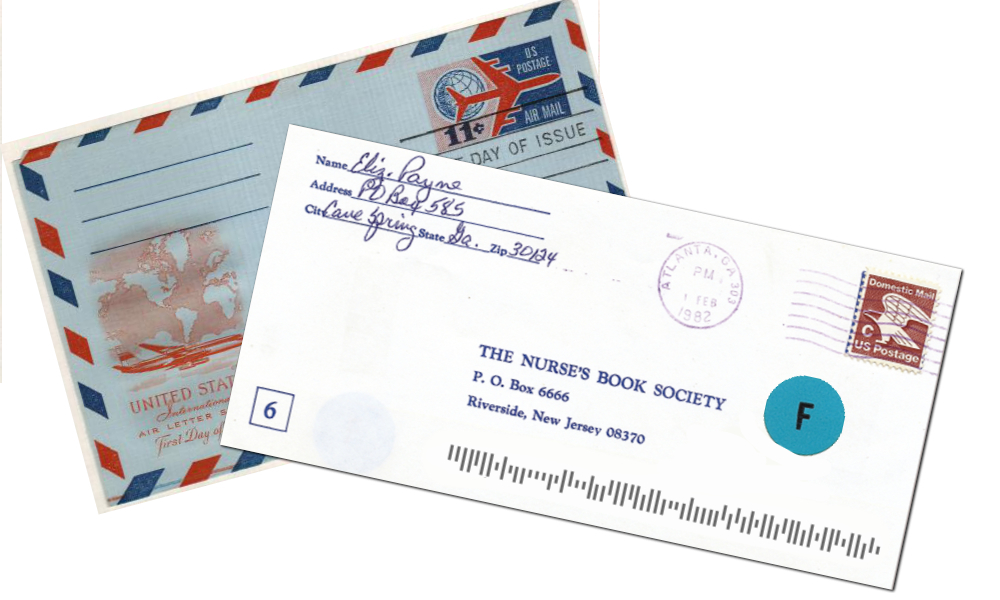 US
POSTAGE
AIR MAIL
11¢
DAY OF ISSUE
UNITED STAT
International
AIR LETTER S
First Day of
Name Eliz. Payne
Address PO Box 585
City Cave Spring State Ga. Zip 30124
ATLANTA, GA 303
PM
1 FEB
1982
Domestic Mail
C
US Postage
THE NURSE'S BOOK SOCIETY
P. O. Box 6666
Riverside, New Jersey 08370
6
F